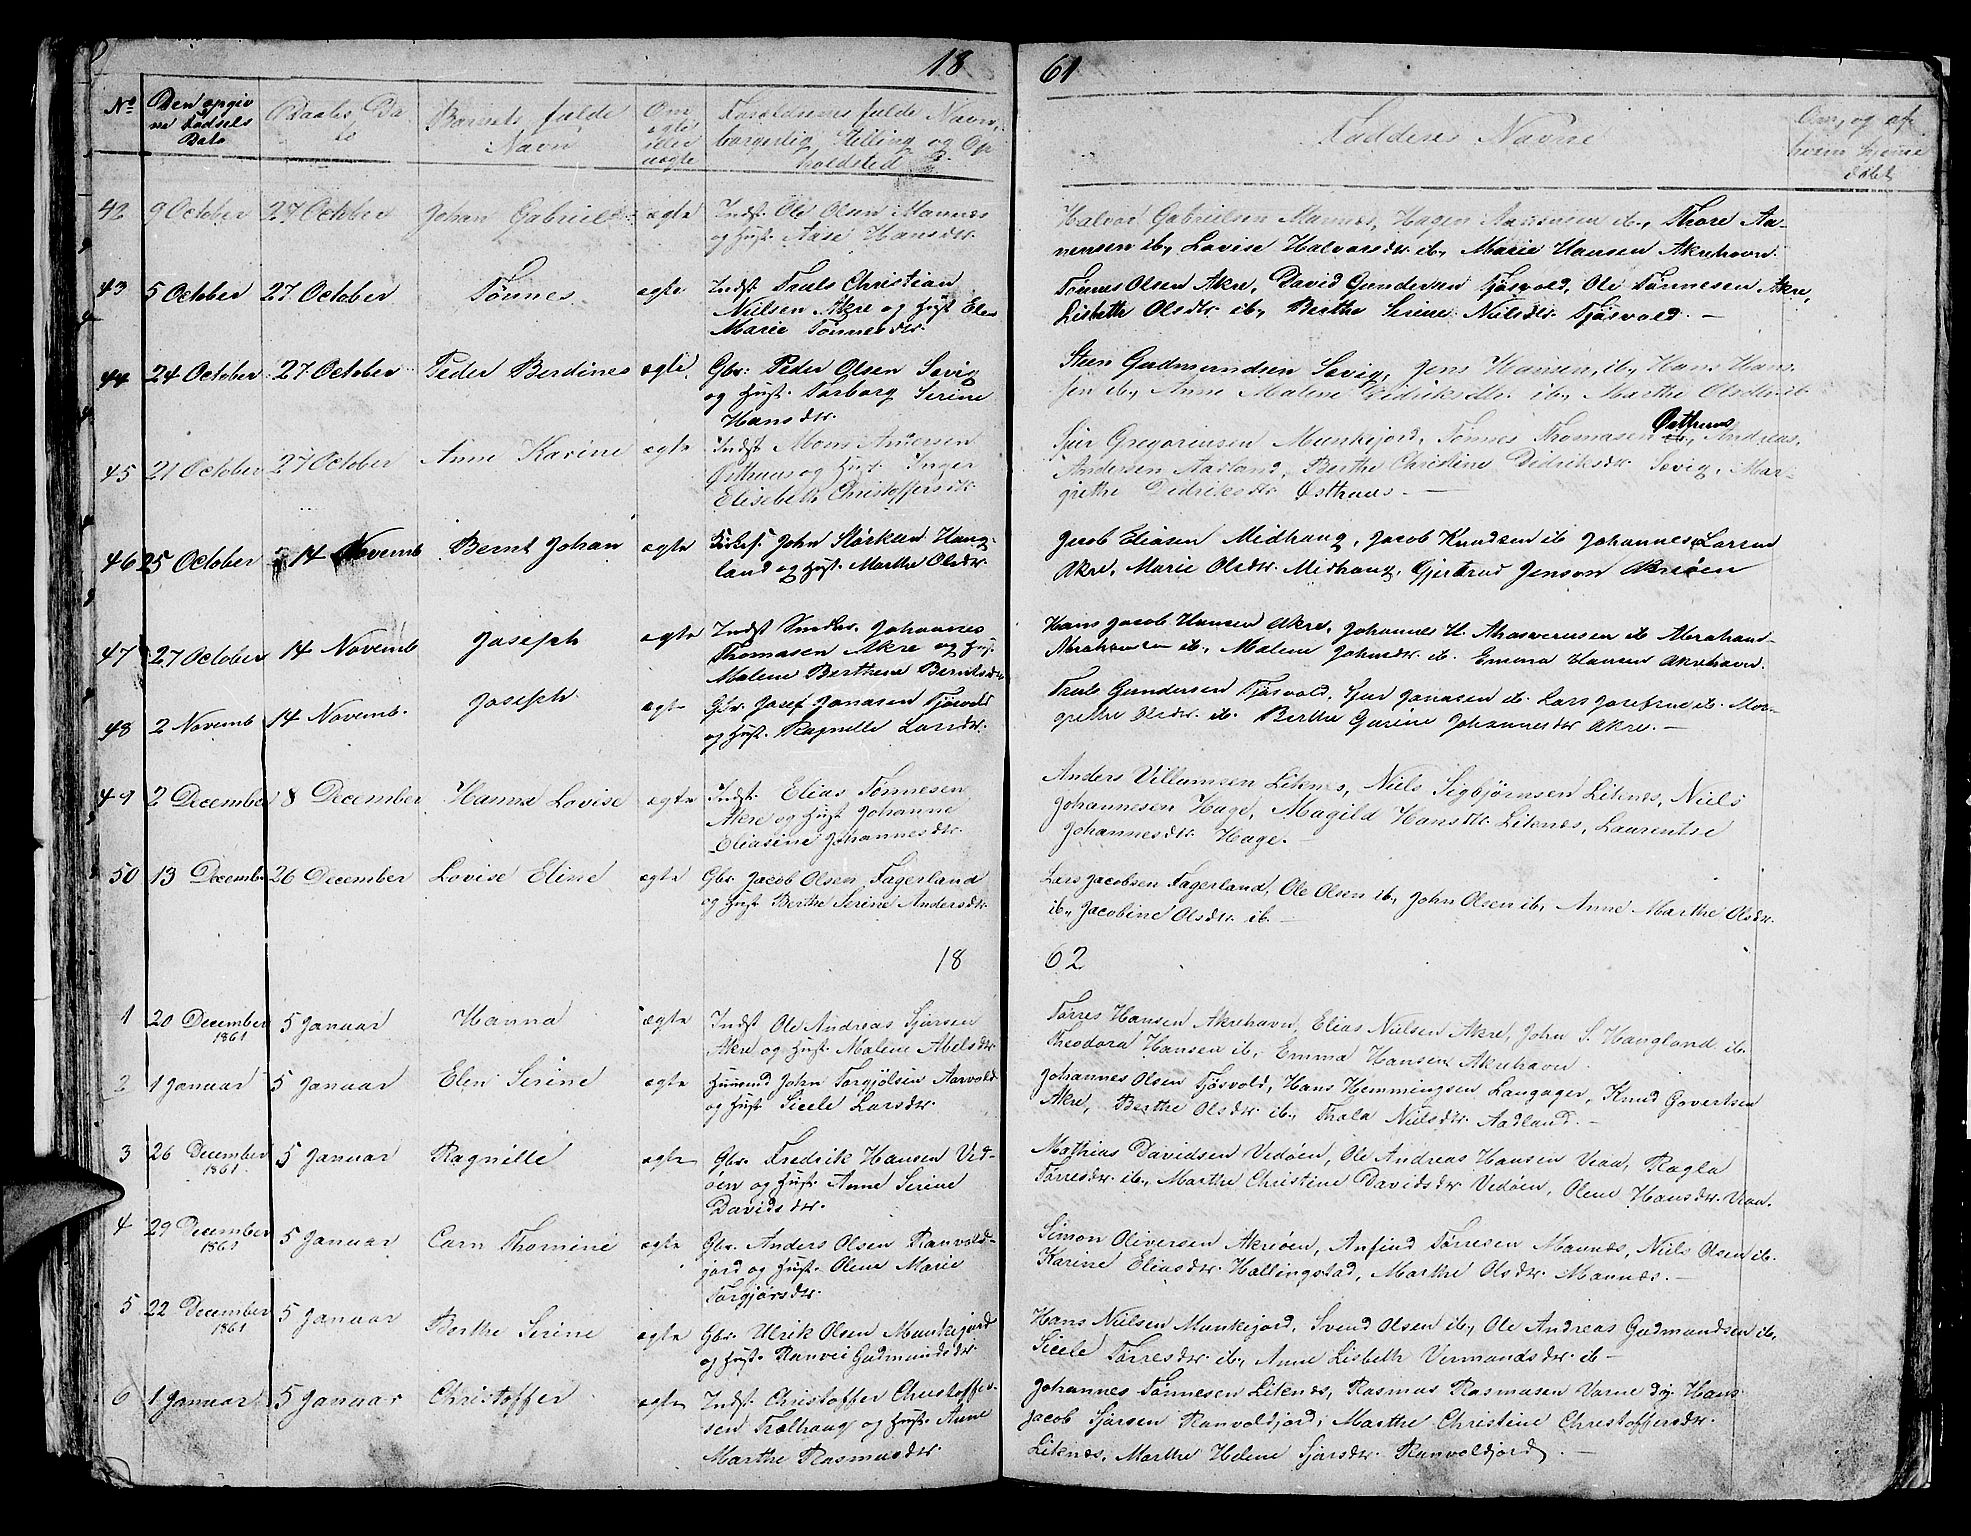 18 61
No
Den opgiv
ne Fødsels
Dato
Daabs Da
to
Barnets fulde
Navn
Om
ægte
eller
uægte
Forældrenes fulde Navn,
borgerlig Stilling og Op
holdsted
Faddernes Navne
Om, og af
hvem hjemme
døbt
42 9 October 27 October Johan Gabriel ægte Indst. Ole Olsen Mannes
og Hust. Aase Hansdtr.
Halvor Gabrielsen Mannes, Hagen ib., Thore Aa-
nensen ib., Lovise Halvorsdtr ib., Marie Hansen Akrehavn.
43 5 October 27 October Tønnes ægte Indst. Truls Christian
Nielsen Akre og Hust Elen
Marie Tønnesdtr.
Tønnes Olsen Akre, David Gundersen Tjøsvold, Ole Tønnesen Akre,
Lisbeth Olsdtr ib., Berthe Serine Nielsdtr Tjøsvold. —
44 24 October 27 October Peder Berdines ægte Gbr. Peder Olsen Sevig
og Hust. Torborg Serine
Hansdtr.
Steen Gudmundsen Sevig, Jens Hansen, ib., Hans Han-
sen ib., Anne Malene Didriksdtr. ib., Marthe Olsdtr ib.
45 21 October 27 October Anne Karine ægte Indst. Mons Andersen
Østhuus og Hust. Inger
Elisebeth Christoffersdtr.
Sjur Gregoriussen Munkejord, Tønnes Thomasen Østhuus ib., Andreas
Andersen Aadland, Berthe Christine Didriksdtr. Sevig, Mar-
grethe Didriksdtr. Østhuus. —
46 25 October 14 Novemb Bernt Johan ægte Kirkes. John Størksen Haug-
land og Hust. Marthe Olsdtr
Jacob Eliasen Midhaug, Jacob Knudsen ib Johannes Larsen
Akre, Marie Olsdtr. Midhaug, Gjertrud Jenson Akreøen
47 27 October 14 Novemb Joseph ægte Indst Smed. Johannes
Thomasen Akre og Hust.
Malene Berthea Berntsdtr
Hans Jacob Hansen Akre, Johannes H. Ahasverussen ib Abraham
Abrahamsen ib., Malene Johnsdtr. ib. Emma Hansen Akrehavn.
48 2 Novemb 14 Novemb. Joseph ægte Gbr. Josef Jonasen Tjøsvold
og Hust. Ragnille Larsdtr.
Truls Gundersen Tjøsvold, Sjur Jonasen ib. Lars Josefsen ib. Mar-
grethe Olsdtr. ib. Berthe Gurine Johannesdtr Akre. —
49 2 December 8 December Hanna Lovise ægte Indst. Elias Tønnesen
Akre og Hust Johanne
Eliasine Johannesdtr.
Anders Villumsen Liknes, Niels Sigbjørnsen Liknes, Niels
Johannesen Hage, Magild Hansdtr. Liknes, Laurentse
Johannesdtr. Hage. —
50 13 Decemb 26 December Lovise Eline ægte Gbr Jacob Olsen Fagerland
og Hust Berthe Serine Andersdtr.
Lars Jacobsen Fagerland, Ole Olsen ib., John Olsen ib., Anne Marthe Olsdtr.
ib., Jacobine Olsdtr. ib. —
18 62
1 20 December 1861 5 Januar Hanna ægte Indst Ole Andreas Sjursen
Akre og Hust. Malene Abelsdtr
Tørres Hansen Akrehavn, Elias Nielsen Akre, John S. Haugland ib.
Theodora Hansen ib., Emma Hansen Akrehavn.
2 1 Januar 5 Januar Elen Serine ægte Huusmd John Torgjølsen Aarvold
og Hust Sicele Larsdtr.
Johannes Olsen Tjøsvold, Hans Hemmingsen Langager, Knud Govertsen
Akre, Berthe Olsdtr ib., Thala Nielsdtr. Aadland. —
3 26 December 1861 5 Januar Ragnille ægte Gbr. Fredrik Hansen Ved-
øen og Hust. Anne Serine
Davidsdtr.
Mathias Davidsen Vedøen, Ole Andreas Hansen Veaa, Ragla
Tørresdtr. ib., Marthe Christine Davidsdtr Vedøen, Olene Hansdtr Veaa.
4 29 December 1861 5 Januar Carn Thomine ægte Gbr. Anders Olsen Ranvold-
jord og Hust. Olene Marie
Torgjørsdtr.
Simon Oliversen Akreøen, Anfind Tørresen Mannes, Niels Olsen ib.
Karine Eliasdtr. Hallingstad, Marthe Olsdtr Mannes. —
5 22 December 1861 5 Januar Berthe Serine ægte Gbr. Ulrik Olsen Munkejord
og Hust. Ranvei Gudmundsdtr
Hans Nielsen Munkejord, Svend Olsen ib., Ole Andreas Gudmundsen ib,
Sicele Tørresdtr ib., Anne Lisbeth Vermundsdtr ib —
6 1 Januar 5 Januar Christoffer ægte Indst. Christoffer Christoffer-
sen Trælhaug og Hust. Anne
Marthe Rasmusdtr
Johannes Tønnesen Liknes, Rasmus Rasmusen Varne dig. Hans
Jacob Sjursen Ranvoldjord, Marthe Christine Christoffersdtr.
Liknes, Marthe Helene Sjursdtr. Ranvoldjord. —